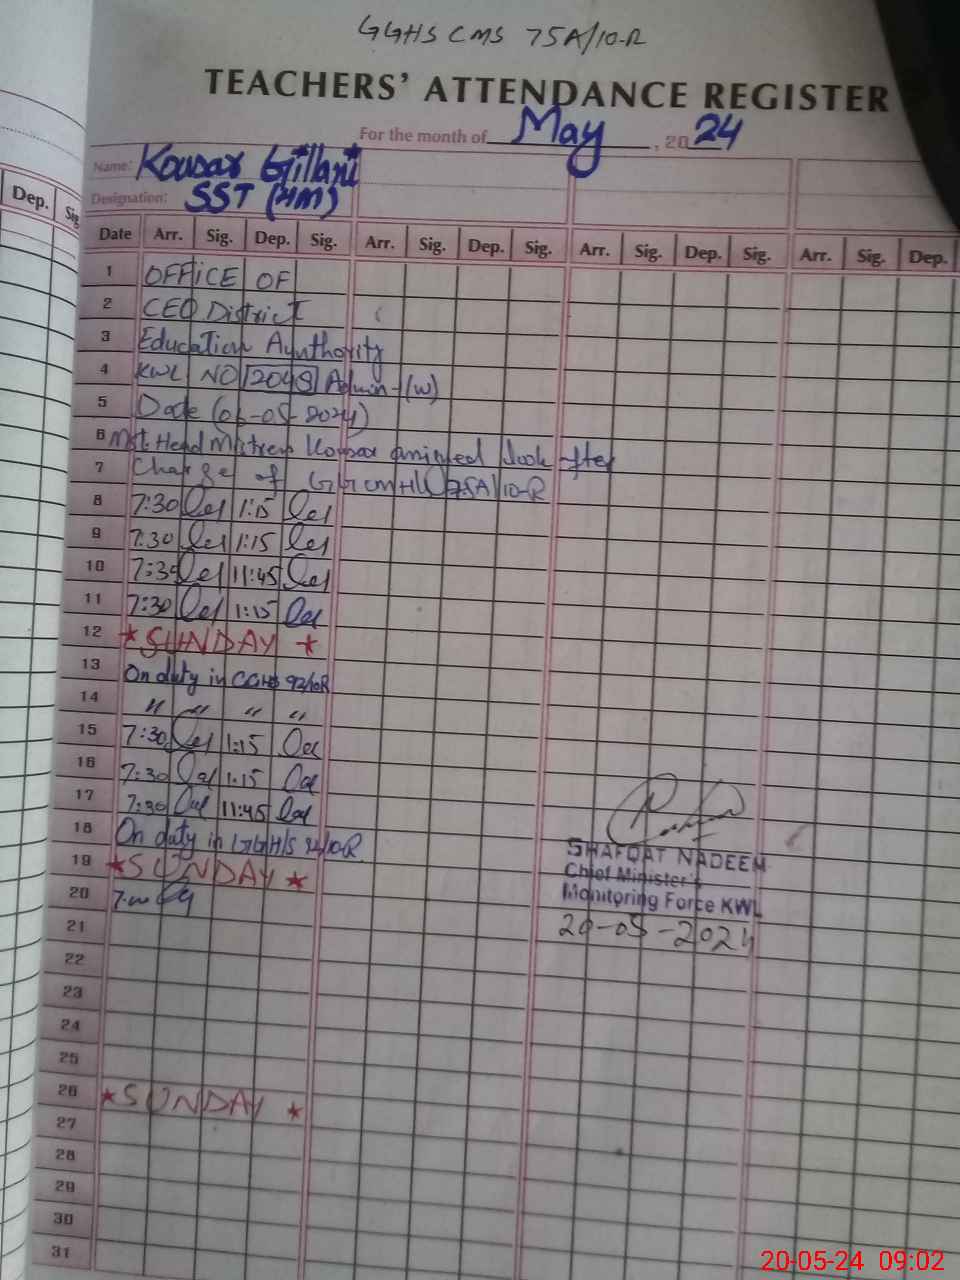 GGHS CMS 75A/10-R
TEACHERS' ATTENDANCE REGISTER
For the month of May, 2024
Name: Kousar Gillani
Designation: SST (HM)
Dep. Sig
Date Arr. Sig. Dep. Sig. Arr. Sig. Dep. Sig. Arr. Sig. Dep. Sig. Arr. Sig. Dep.
1 OFFICE OF
2 CEO District
3 Education Aythority
4 KWL NO 2049 Admin-(W)
5 Date (06-05-2024)
6 Mst. Head Mistress Kousar look after
7 Charge of 75A/10-R
8 7:30 1:15
9 7:30 1:15
10 7:30 11:45
11 7:30 1:15
12 *SUNDAY *
13 On duty in GGHS 92/10R
14 " " " "
15 7:30 1:15
16 7:30 1:15
17 7:30 11:45
18 On duty in GGH/S 92/10-R
19 *SUNDAY *
20
21
22
23
24
25
26 *SUNDAY *
27
28
29
30
31
SHAFQAT NADEEM
Chief Minister's
Monitoring Force KWL
20-05-2024
20-05-24 09:02